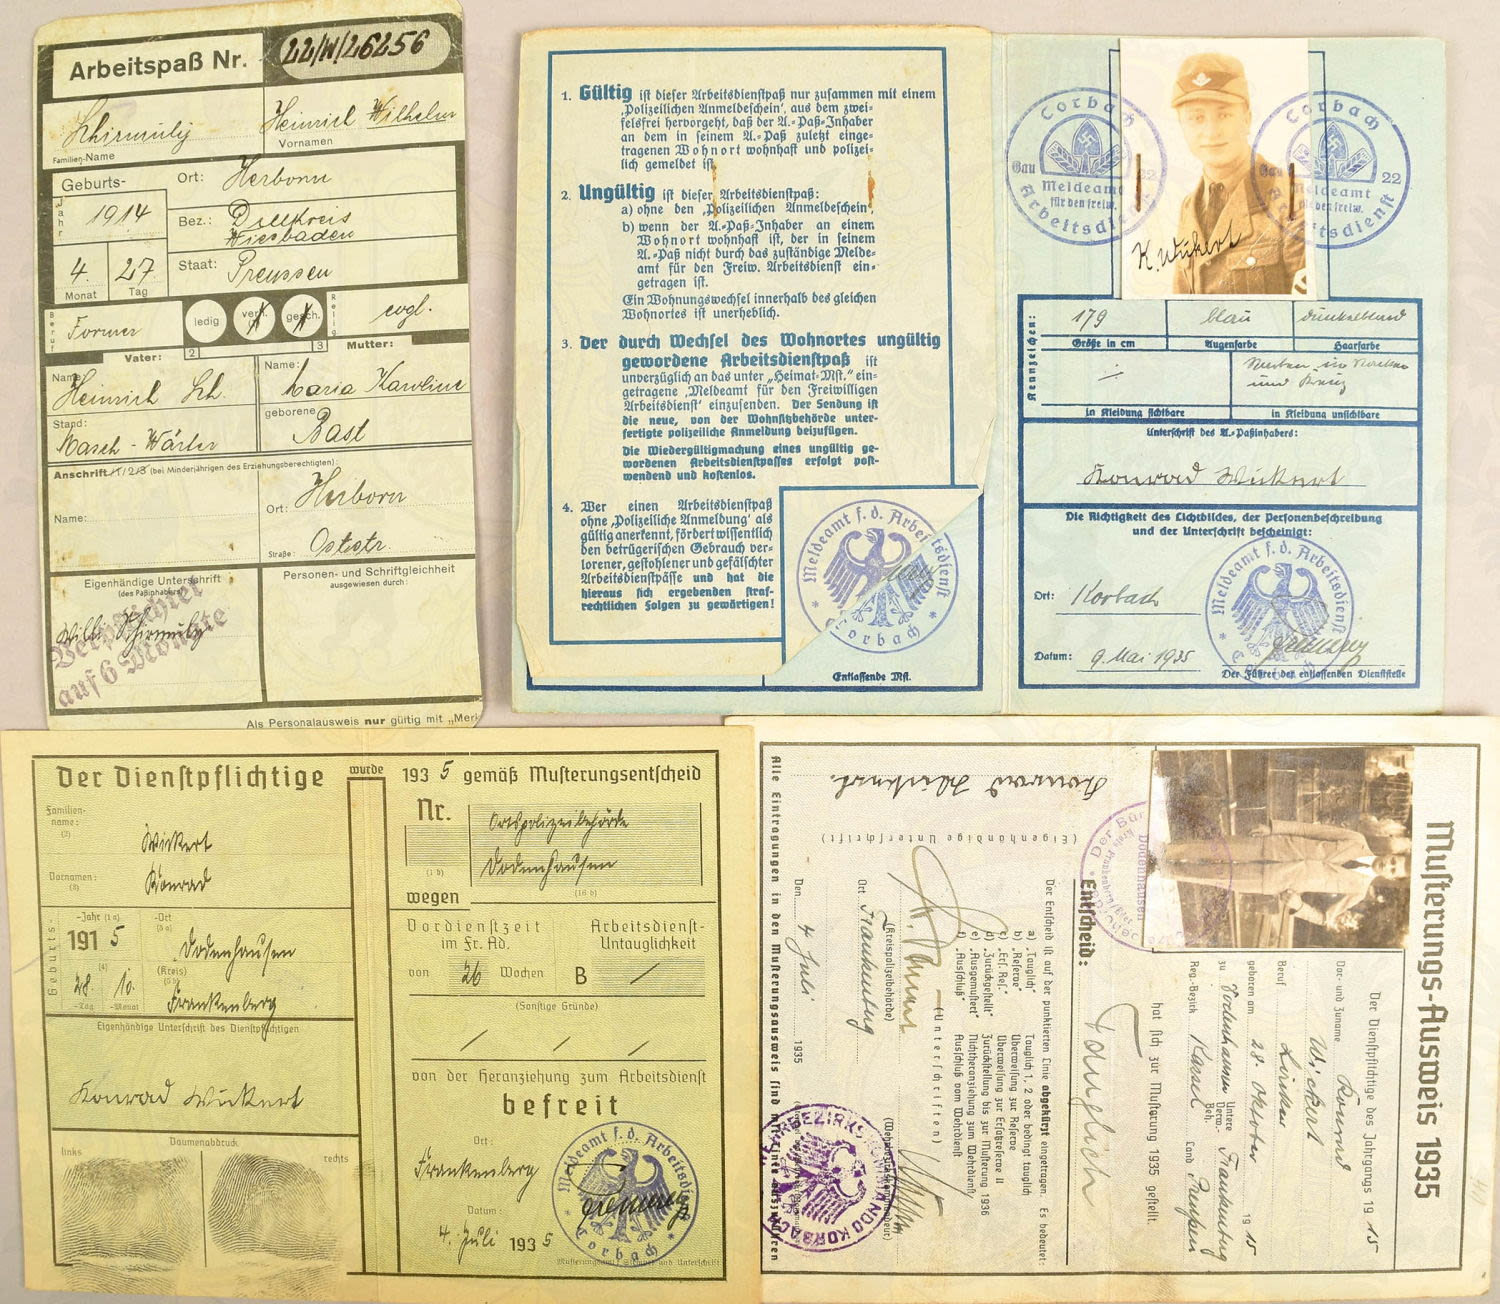 Arbeitspaß Nr. 22/W/26256
Schirmuly Heinrich Wilhelm
Familien-Name Vornamen
Geburts- Ort: Herborn
Jahr 1914 Bez.: Dillkreis
Wiesbaden
4. 27 Staat: Preussen
Monat Tag
Beruf Former ledig verh. gesch. Relig. evgl.
Vater: 2 3 Mutter:
Name: Heinrich Sch. Name: Maria Karoline
Stand: geborene: Bast
Masch.-Wärter
Anschrift (bei Minderjährigen des Erziehungsberechtigten):
Ort: Herborn
Name:
Straße: Oststr.
Eigenhändige Unterschrift Personen- und Schriftgleichheit
(des Paßinhabers) ausgewiesen durch:
Willi Schirmuly
Verpflichtet
auf 6 Monate
Als Personalausweis nur gültig mit „Merk
1. Gültig ist dieser Arbeitsdienstpaß nur zusammen mit einem
‚Polizeilichen Anmeldeschein‘, aus dem zwei-
felsfrei hervorgeht, daß der A.-Paß-Inhaber
an dem in seinem A.-Paß zuletzt einge-
tragenen Wohnort wohnhaft und polizei-
lich gemeldet ist.
2. Ungültig ist dieser Arbeitsdienstpaß:
a) ohne den ‚Polizeilichen Anmeldeschein‘,
b) wenn der A.-Paß-Inhaber an einem
Wohnort wohnhaft ist, der in seinem
A.-Paß nicht durch das zuständige Melde-
amt für den Freiw. Arbeitsdienst ein-
getragen ist.
Ein Wohnungswechsel innerhalb des gleichen
Wohnortes ist unerheblich.
3. Der durch Wechsel des Wohnortes ungültig
gewordene Arbeitsdienstpaß ist
unverzüglich an das unter „Heimat-Mst.“ ein-
getragene ‚Meldeamt für den Freiwilligen
Arbeitsdienst‘ einzusenden. Der Sendung ist
die neue, von der Wohnsitzbehörde unter-
fertigte polizeiliche Anmeldung beizufügen.
Die Wiedergültigmachung eines ungültig ge-
wordenen Arbeitsdienstpasses erfolgt post-
wendend und kostenlos.
4. Wer einen Arbeitsdienstpaß
ohne ‚Polizeiliche Anmeldung‘ als
gültig anerkennt, fördert wissentlich
den betrügerischen Gebrauch ver-
lorener, gestohlener und gefälschter
Arbeitsdienstpässe und hat die
hieraus sich ergebenden straf-
rechtlichen Folgen zu gewärtigen!
Meldeamt f. d. Arbeitsdienst
Corbach
Entlassende Mst.
Corbach
Gau 22
Meldeamt
für den freiw.
Arbeitsdienst
Corbach
Gau 22
Meldeamt
für den freiw.
Arbeitsdienst
K. Wickert
Kennzeichen:
179 blau dunkelblond
Größe in cm Augenfarbe Haarfarbe
Narben im Nacken
und Kreuz
in Kleidung sichtbare in Kleidung unsichtbare
Unterschrift des A.-Paßinhabers:
Konrad Wickert
Die Richtigkeit des Lichtbildes, der Personenbeschreibung
und der Unterschrift bescheinigt:
Meldeamt f. d. Arbeitsdienst
Corbach
Ort: Korbach
Datum: 9. Mai 1935
Der Führer der entlassenden Dienststelle
Der Dienstpflichtige wurde 1935 gemäß Musterungsentscheid
Familien-
name:
(2)
Wickert
Vornamen:
(3)
Konrad
Nr. Ortspolizeibehörde
Dodenhausen
(1 b) (16 b)
wegen
Geburts-
-Jahr (1 a) -Ort
(5 a)
1915 Dodenhausen
(4) (Kreis)
(5 b)
28. 10. Frankenberg
-Tag -Monat
Vordienstzeit Arbeitsdienst-
im Fr. Ad. Untauglichkeit
von 26 Wochen B /
(Sonstige Gründe)
/ / /
Eigenhändige Unterschrift des Dienstpflichtigen
Konrad Wickert
von der Heranziehung zum Arbeitsdienst
befreit
Daumenabdruck
links rechts
Ort:
Frankenberg
Datum:
4. Juli 1935
Meldeamt f. d. Arbeitsdienst
Corbach
Musterungsamt Stempel und Unterschrift
Musterungs-Ausweis 1935
Der Dienstpflichtige des Jahrgangs 1915
Vor- und Zuname Konrad
Wickert
Beruf
geboren am 28. Oktober 1915
zu Dodenhausen Untere Verw. Beh. Frankenberg
Reg.-Bezirk Kassel Land Preußen
hat sich zur Musterung 1935 gestellt.
Entscheid: Tauglich
Der Entscheid ist auf der punktierten Linie abgekürzt eingetragen. Es bedeutet:
a) „Tauglich“ Tauglich 1, 2 oder bedingt tauglich
b) „Reserve“ Überweisung zur Reserve
c) „Ers. Res.“ Überweisung zur Ersatzreserve II
d) „Zurückgestellt“ Zurückstellung bis zur Musterung 1936
e) „Ausgemustert“ Nichtheranziehung zum Wehrdienst
f) „Ausschluß“ Ausschluß vom Wehrdienst
(Unterschriften)
(Kreispolizeibehörde)
Ort Frankenberg
Den 4. Juli 1935
WEHRBEZIRKSKOMMANDO KORBACH
Konrad Wickert.
(Eigenhändige Unterschrift)